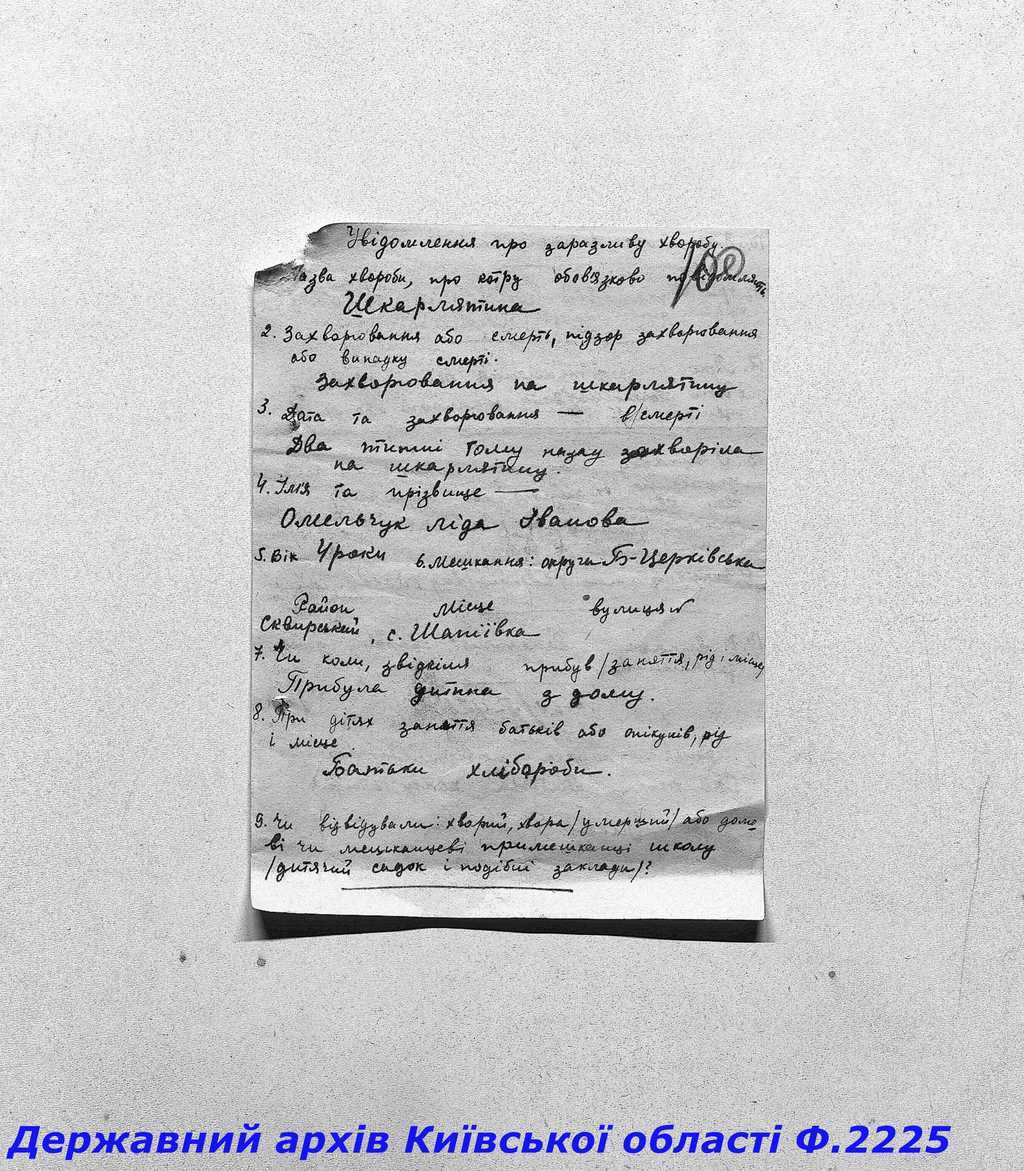 Увідомлення про заразливу хворобу.
108
Назва хвороби, про котру обов'язково повідомлять
Шкарлятина
2. Захворювання або смерть, підзор захворювання
або випадку смерті.
Захворювання на шкарлятину
3. Дата та захворювання — в/смерті
Два тижні тому назад захворіла
на шкарлятину.
4. Ім'я та прізвище —
Омельчук Ліда Іванова
5. Вік 4 роки 6. Мешкання: округа Б-Церківська
Район місце вулиця №
Сквирський, с. Шапіївка
7. Чи коли, звідкіля прибув /заняття, рід і місце/
Прибула дитина з дому.
8. При дітях заняття батьків або опікунів, рід
і місце.
Батьки хлібороби.
9. Чи відвідували: хворий, хвора /умерший/ або домо
ві чи мешканцеві примешканці школу
/дитячий садок і подібні заклади/?
Державний архів Київської області Ф.2225